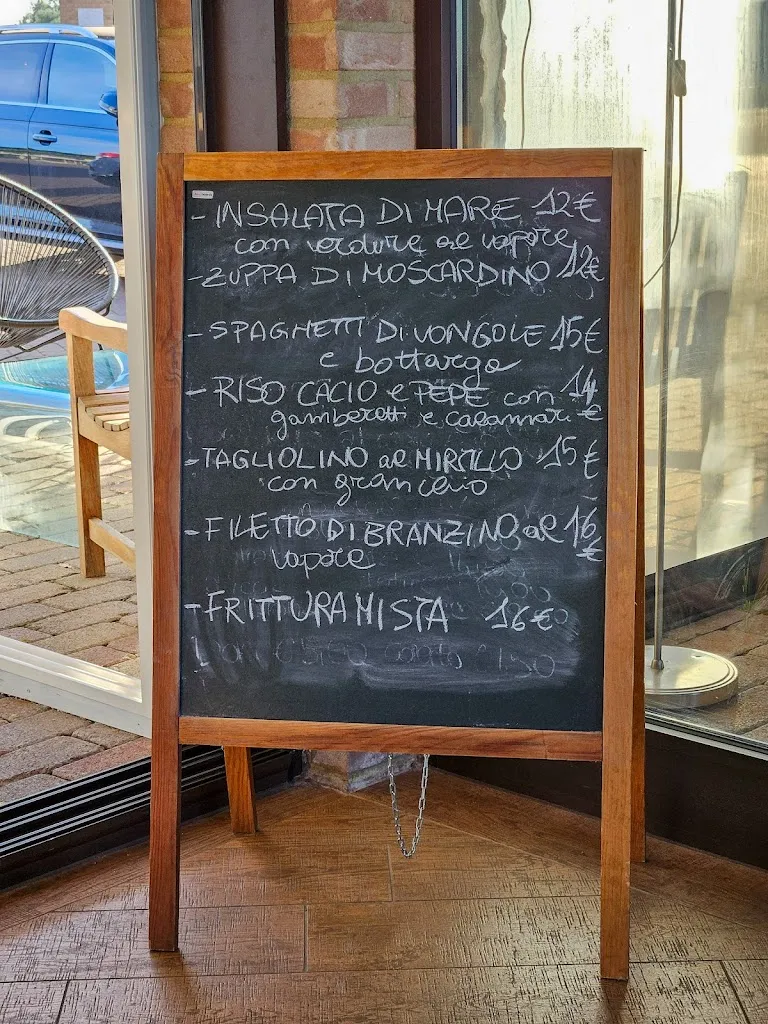 - INSALATA DI MARE 12€
con verdure al vapore
- ZUPPA DI MOSCARDINO 12€
- SPAGHETTI DI VONGOLE 15€
e bottarga
- RISO CACIO e PEPE con 14€
gamberetti e calamari
- TAGLIOLINO al MIRTILLO 15€
con granchio
- FILETTO DI BRANZINO al 16€
vapore
- FRITTURA MISTA 16€